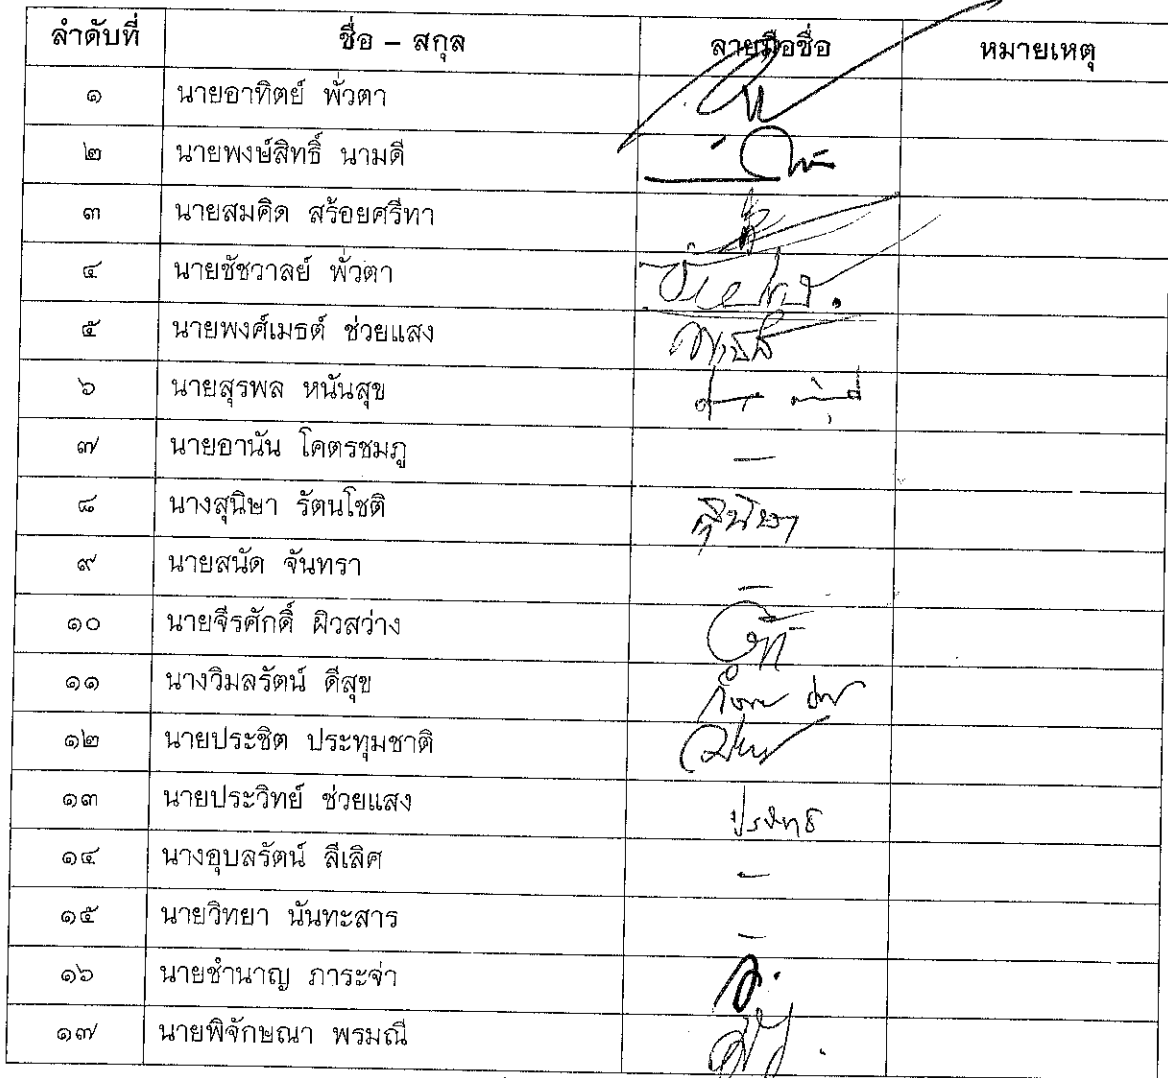 ลำดับที่ ชื่อ – สกุล ลายมือชื่อ หมายเหตุ
๑ นายอาทิตย์ พั่วตา
๒ นายพงษ์สิทธิ์ นามดี
๓ นายสมคิด สร้อยศรีทา
๔ นายชัชวาลย์ พั่วตา
๕ นายพงศ์เมธต์ ช่วยแสง
๖ นายสุรพล หนันสุข
๗ นายอานัน โคตรชมภู –
๘ นางสุนิษา รัตนโชติ สุนิษา
๙ นายสนัด จันทรา –
๑๐ นายจีรศักดิ์ ผิวสว่าง
๑๑ นางวิมลรัตน์ ดีสุข
๑๒ นายประชิต ประทุมชาติ
๑๓ นายประวิทย์ ช่วยแสง
๑๔ นางอุบลรัตน์ ลีเลิศ –
๑๕ นายวิทยา นันทะสาร –
๑๖ นายชำนาญ ภาระจ่า
๑๗ นายพิจักษณา พรมณี